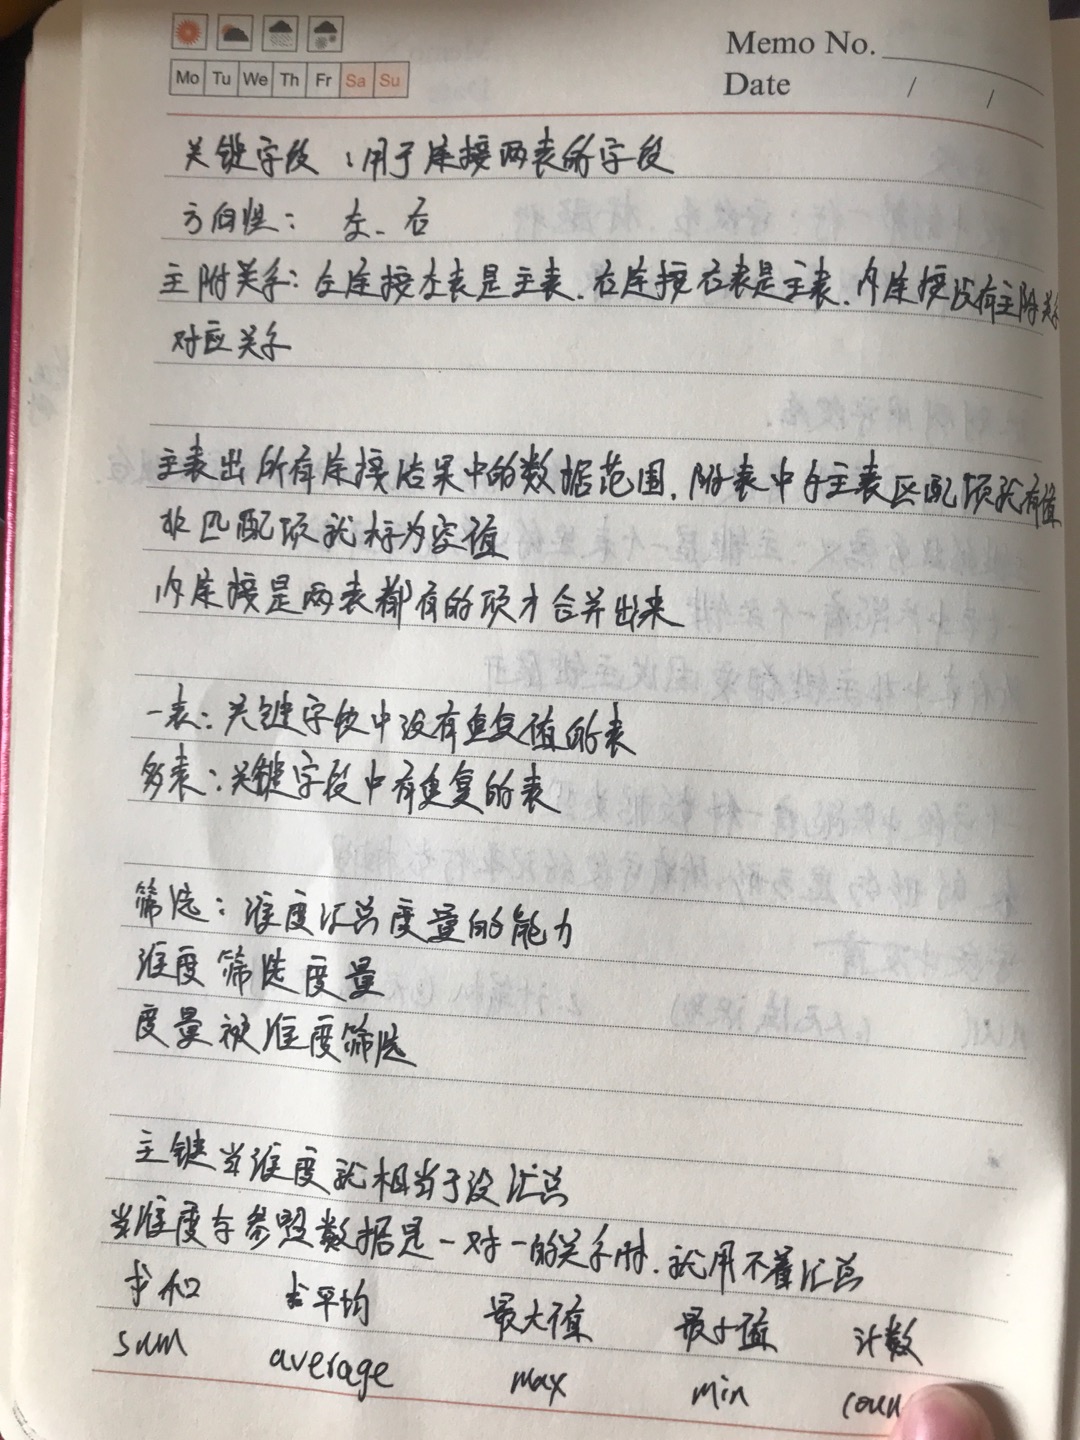 Memo No.
Mo Tu We Th Fr Sa Su
Date / /
关键字段：用于连接两表的字段
方向性：左、右
主附关系：左连接左表是主表、右连接右表是主表、内连接没有主附关系
对应关系
主表出所有连接结果中的数据范围，附表中与主表匹配项就有值
非匹配项就标为空值
内连接是两表都有的项才合并出来
一表：关键字段中没有重复值的表
多表：关键字段中有重复的表
筛选：维度汇总度量的能力
维度筛选度量
度量被维度筛选
主键当维度就相当于没汇总
当维度与参照数据是一对一的关系时，就用不着汇总
求和 求平均 最大值 最小值 计数
sum average max min coun